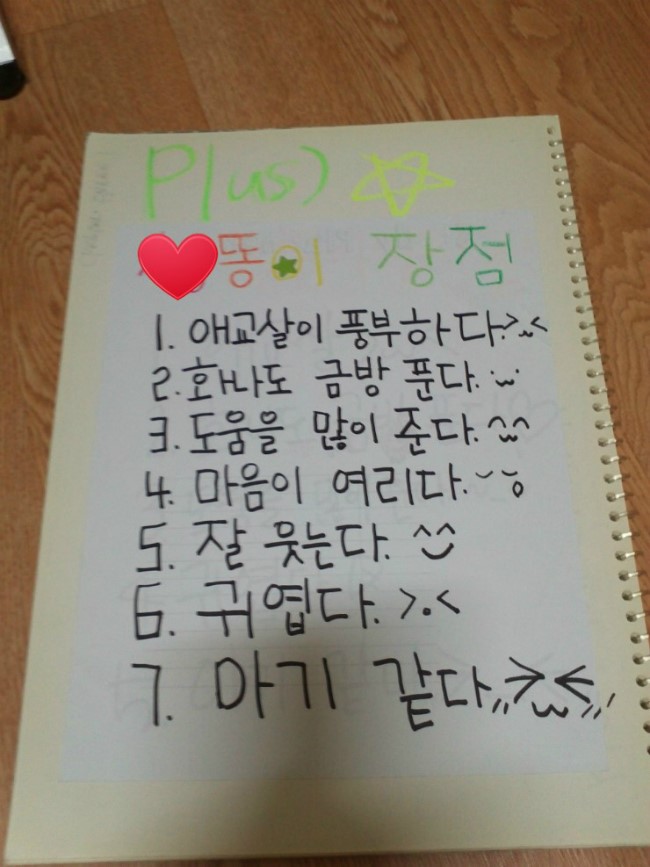 Plus) ☆
똥이 장점
1. 애교살이 풍부하다.>ㅡ<
2. 화나도 금방 푼다.
3. 도움을 많이 준다.^^
4. 마음이 여리다.
5. 잘 웃는다. ^^
6. 귀엽다. >.<
7. 아기 같다,, >ω< ,,